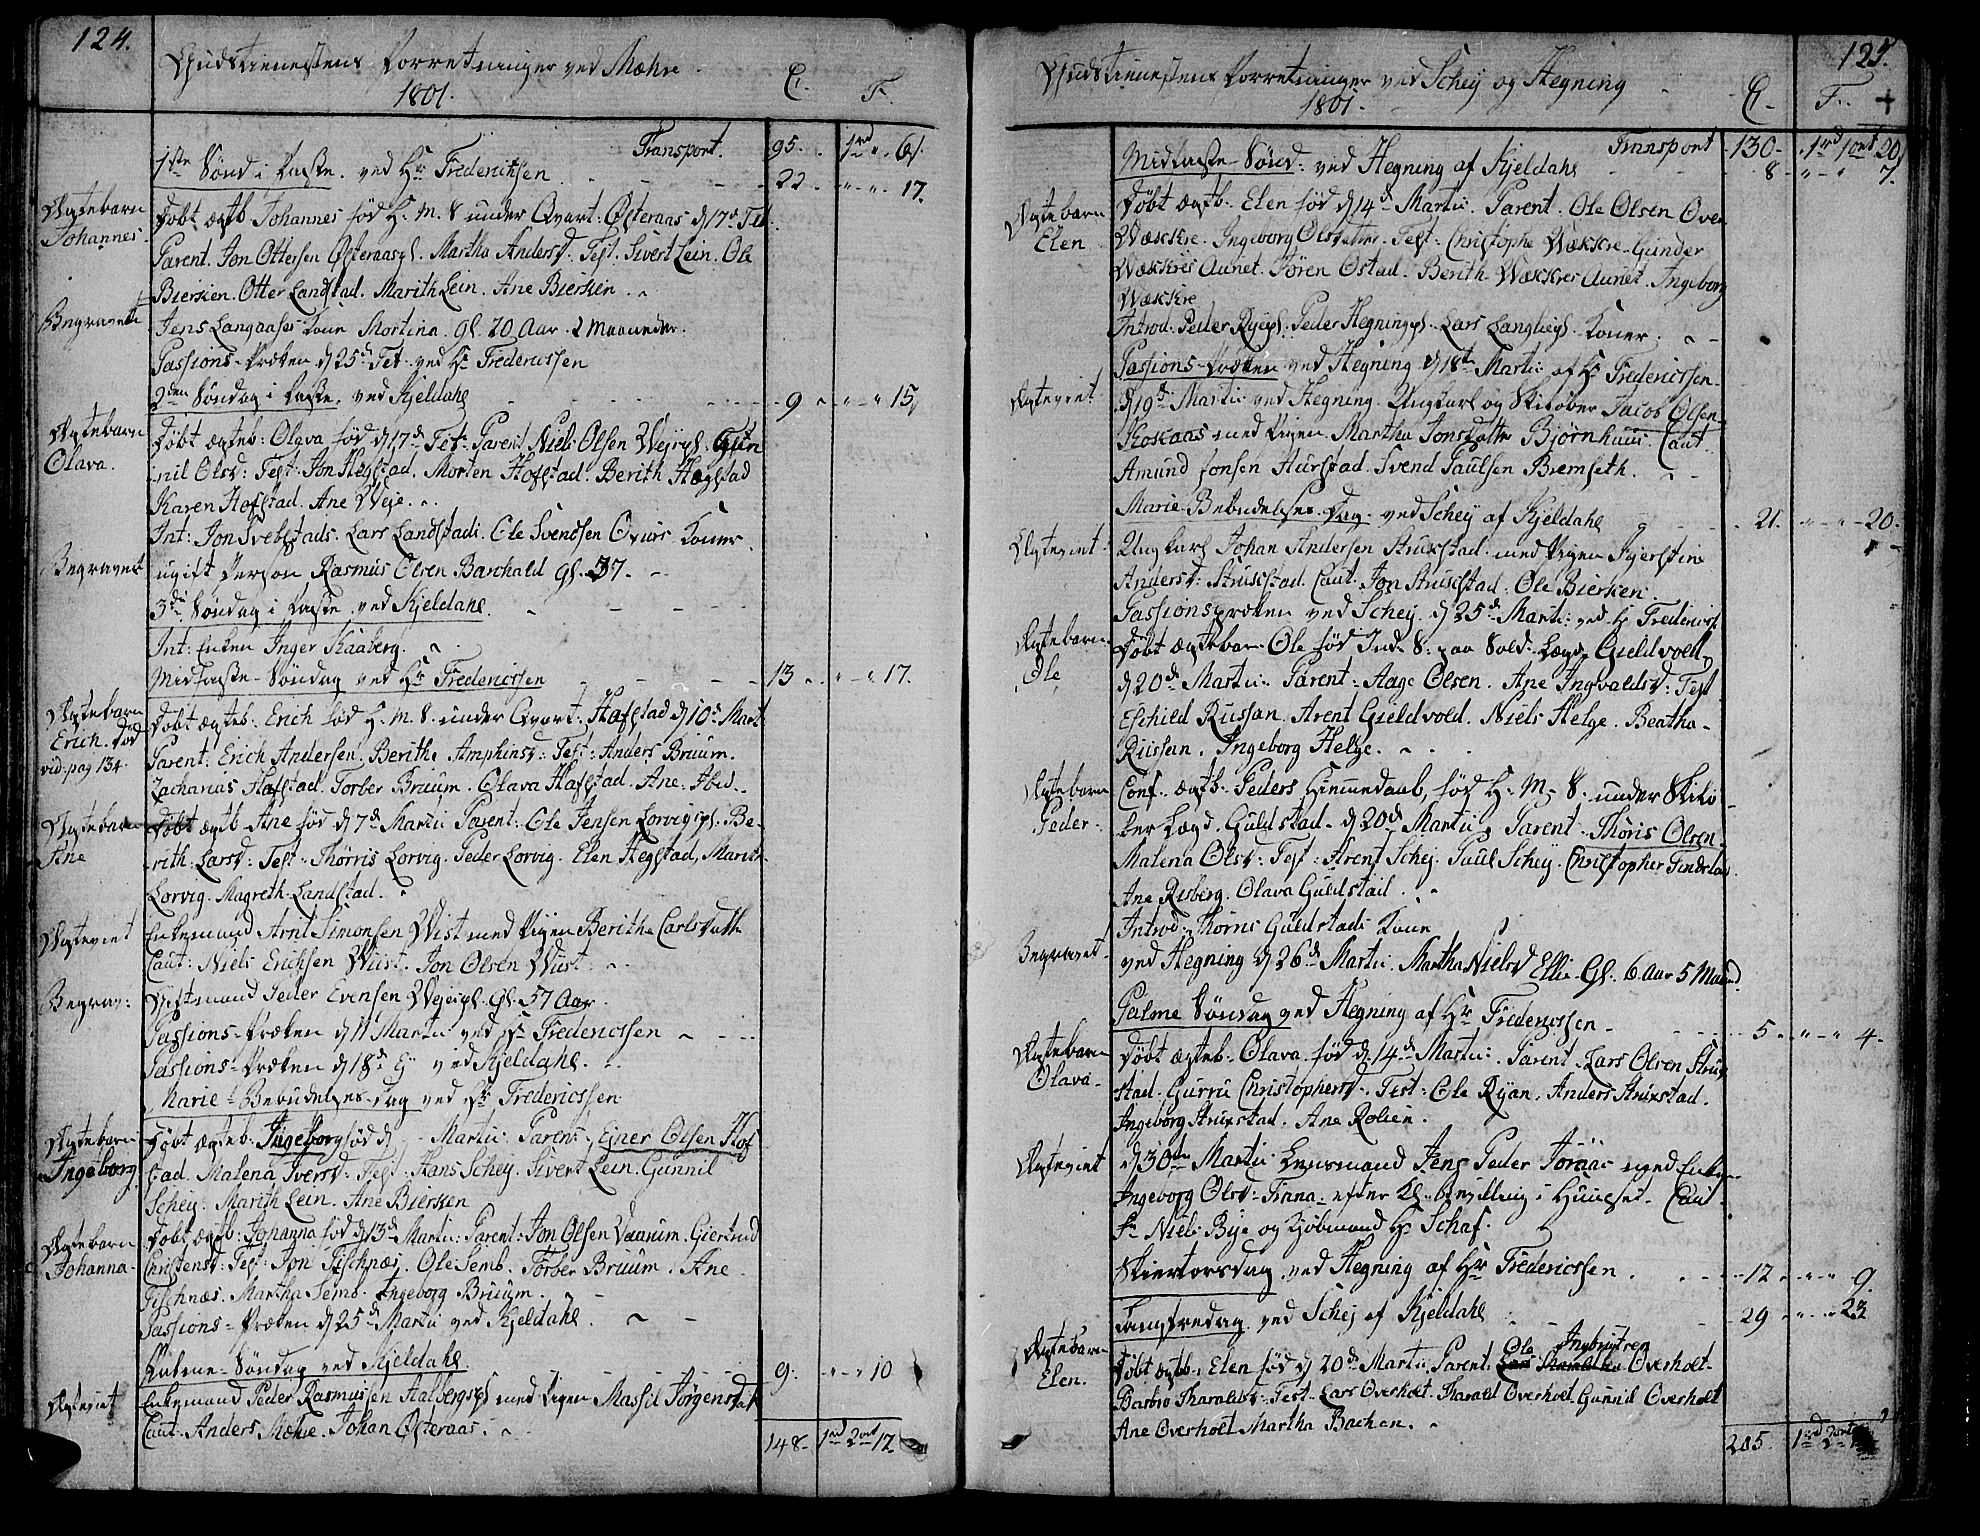 124.
Gudstienestens Forretninger ved Mæhre
1801.
C.
F.
Transport. 95. 1rd " 6s.
1ste Sønd. i Faste. ved Hr Frederichsen 22 " " 17.
Ægtebarn Johannes.
Døbt ægtb Johannes fød H. M. S under Qvart: Østeraas d 17d Feb.
Parent. Jon Ottersen Østeraaspl. Martha Andersd. Test. Sivert Lein. Ole
Biersken. Otter Landstad. Marith Lein. Ane Biersken.
Begravet
Jens Langaases Kone Mortina. gl. 20 Aar. 2 Maaneder.
Passions-Præken d 25d Feb. ved Hr Fredericssen
2den Søndag i Faste. ved Kjeldahl 9 " " 15
Ægtebarn Olava.
Døbt ægteb: Olava fød d 17d Feb: Parent. Niels Olsen Wejepl. Gun
nil Olsd: Test. Jon Hegstad. Morten Hofstad. Berith Hægstad
Karen Hofstad. Ane Weje.
Int: Jon Svebstads. Lars Landstads. Ole Svendsen Koner.
Begravet
ugift Person Rasmus Olsen Barchald gl. 37.
3die Søndag i Faste ved Kjeldahl.
Int: Enken Inger Kaaberg.
Midfaste-Søndag ved Hr Fredericssen 13 " " 17.
Ægtebarn Erich. død vid. pag 134.
Døbt ægteb: Erich fød H. M. S. under Qvart: Hafstad d 10d Mart
Parent: Erich Andersen. Berithe Amphinsd: Test: Anders Bruum.
Zacharias Hafstad. Torber Bruum. Olava Hafstad. Ane. Ibid.
Ægtebarn Ane
Døbt ægtb Ane fød d 7d Martii Parent: Ole Jensen Lorvigspl. Be-
rith: Larsd: Test: Thørris Lorvig. Peder Lorvig. Elen Hegstad, Marith
Lorvig. Magreth Landstad.
Ægteviet
Enkemand Arnt Simonsen Wist med Pigen Beritha Carlsdatter
Caut: Niels Erichsen Wiist. Jon Olsen Wiist
Begrav:
Gistmand Peder Evensen Wejespl. gl. 57 Aar.
Passions-Præken d 11 Martii ved Hr Fredericssen
Passions-Præken d 18d Ej ved Kjeldahl.
Marie-Bebudelses-dag ved Hr Fredericssen
Ægtebarn Ingeborg
Døbt ægteb. Ingeborg fød d - Martii. Parent. Ejner Olsen Hof
stad. Malena Iversd. Test. Hans Schej. Sivert Lein. Gunnil
Schej. Marith Lein. Ane Biersken
Ægtebarn Johanna
Døbt ægtb: Johanna fød d 13d Martii: Parent: Jon Olsen Vaarum. Giertrud
Christensd: Test: Jon Fischnæs. Ole Semb. Torber Bruum. Ane
Fischnæs. Martha Semb. Ingeborg Bruum.
Passions-Præken d 25d Martii ved Kjeldahl.
Palme-Søndag ved Kjeldahl 9. " " 10
Ægteviet
Enkemand Peder Rasmussen Aalbergspl med Pigen Massil Jørgensdat
Caut. Anders Mæhre. Johan Østeraas.
148. 1rd 2ort 12
125.
Gudstienestens Forretninger ved Schej og Hegning
1801.
C. F.
Transport 130 1rd 1ort 20s
Midfaste-Sønd: ved Hegning af Kjeldahl 8 " " 7.
Ægtebarn Elen
Døbt ægtb: Elen fød d 14d Martii. Parent. Ole Olsen Over
Wækkre. Ingeborg Olsdatter. Test: Christophe Wækkre. Gunder
Wækkres Aunet. Søren Østad. Berith Wækkres Aunet. Ingeborg
Wækkre
Introd: Peder Ryespl. Peder Hegningspl. Lars Langliegs. Koner.
Passions-Præken ved Hegning d 18de Martii af Hr Fredericssen
Ægteviet
d 19d Martii ved Hegning. Ungkarl og Skiløber Jacob Olsen
Koskaas med Pigen Martha Jonsdatter Bjørnhuus. Caut.
Amund Jonsen Hurstad. Svend Paulsen Biemseth.
Marie-Bebudelses Dag. ved Schej af Kjeldahl 21. " " 20.
Ægteviet.
Ungkarl Johan Andersen Strukstad med Pigen Kjerstine
Andersd: Strukstad. Caut. Jon Strukstad: Ole Biersken.
Passionspræken ved Schej d 25d Martii: ved Hr Fredericss.
Ægtebarn Ole
Døbt ægtebarn Ole fød Ind. S: paa Sold: Lægd Gieldvold
d 20d Martii. Parent: Aage Olsen. Ane Ingvaldsd: Test
Eschild Russan. Arent Gieldvold. Niels Helge. Beatha
Russan. Ingeborg Helge.
Ægtebarn Peder
Conf. ægtb: Peders Hiemmedaab, fød H. M. S. under Skilø
ber Lægd Guldstad d 20d Martii. Parent. Thøris Olsen
Malena Olsd: Test: Arent Schej. Paul Schej. Christopher
Ane Risberg. Olava Guldstad.
Introd: Thørris Guldstads Kone
Begravet
ved Hegning d 26d Martii. Martha Nielsd Ellie. Gl. 6 Aar 5 Maaned.
Palme Søndag ved Hegning af Hr Fredericssen 5 " " 4.
Ægtebarn Olava
Døbt ægteb: Olava fød d. 14d Martii. Parent. Lars Olsen Struk
stad. Gurru Christophersd. Test: Ole Ryan. Anders Strukstad.
Ingeborg Strukstad. Ane Rolien.
Ægteviet
d 30te Martii. Lensmand Jens Peder Joraas med Enken
Ingeborg Olsd: Finna efter Kl. Bevilling i Huuset. Caut.
Hr Niels Bye og Kiøbmand Hr Schaf.
Skiertorsdag ved Hegning af Hr Fredericssen 12 " " 9.
Langfredag ved Schej af Kjeldahl 29 " " 23
Ægtebarn Elen.
Døbt ægtb: Elen fød d 20d Martii. Parent Ole Overholt
Barbro Tharaldsd: Test: Lars Overholt. Tharald Overholt Gunnil Overholt
Ane Overholt Martha Bachen.
205. 1rd 2ort